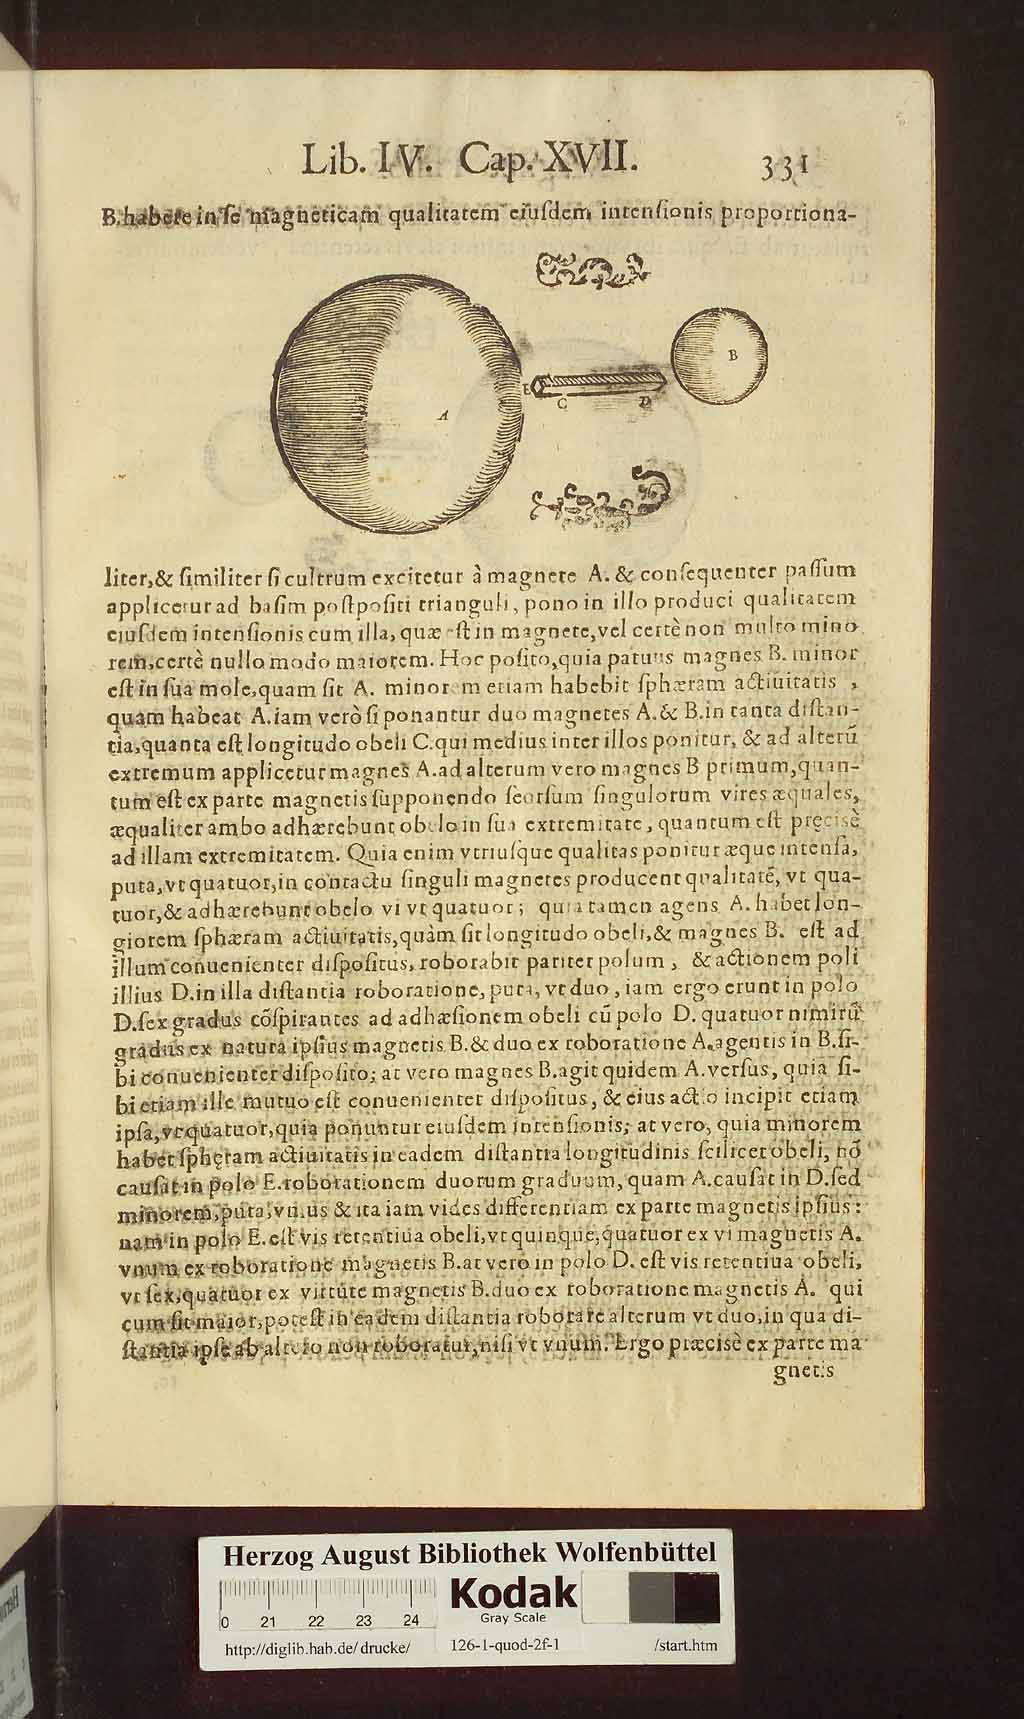 Lib. IV. Cap. XVII. 331
B. habere in ſe magneticam qualitatem eiuſdem intenſionis proportiona-
A
E
C
D
B
liter, & ſimiliter ſi cultrum excitetur à magnete A. & conſequenter paſſum
applicetur ad baſim poſtpoſiti trianguli, pono in illo produci qualitatem
eiuſdem intenſionis cum illa, quæ eſt in magnete, vel certè non multo mino
rem, certè nullo modo maiorem. Hoc poſito, quia paruus magnes B. minor
eſt in ſua mole, quam ſit A. minorem etiam habebit ſphæram actiuitatis ,
quam habeat A. iam verò ſi ponantur duo magnetes A. & B. in tanta diſtan-
tia, quanta eſt longitudo obeli C. qui medius inter illos ponitur, & ad alterũ
extremum applicetur magnes A. ad alterum vero magnes B primum, quan-
tum eſt ex parte magnetis ſupponendo ſeorſum ſingulorum vires æquales,
æqualiter ambo adhærebunt obelo in ſua extremitate, quantum eſt pręcisè
ad illam extremitatem. Quia enim vtriuſque qualitas ponitur æque intenſa,
puta, vt quatuor, in contactu ſinguli magnetes producent qualitatē, vt qua-
tuor, & adhærebunt obelo vi vt quatuor; quia tamen agens A. habet lon-
giorem ſphæram actiuitatis, quàm ſit longitudo obeli, & magnes B. eſt ad
illum conuenienter diſpoſitus, roborabit pariter polum , & actionem poli
illius D. in illa diſtantia roboratione, puta, vt duo, iam ergo erunt in polo
D. ſex gradus cõſpirantes ad adhæſionem obeli cũ polo D. quatuor nimirũ
gradus ex natura ipſius magnetis B. & duo ex roboratione A. agentis in B. ſi-
bi conuenienter diſpoſito; at vero magnes B. agit quidem A. verſus, quia ſi-
bi etiam ille mutuo eſt conuenienter diſpoſitus, & eius actio incipit etiam
ipſa, vt quatuor, quia ponuntur eiuſdem intenſionis; at vero, quia minorem
habet ſphęram actiuitatis in eadem diſtantia longitudinis ſcilicet obeli, nõ
cauſat in polo E. roborationem duorum graduum, quam A. cauſat in D. ſed
minorem, puta, vnius & ita iam vides differentiam ex parte magnetis ipſius:
nam in polo E. eſt vis retentiua obeli, vt quinque, quatuor ex vi magnetis A.
vnum ex roboratione magnetis B. at vero in polo D. eſt vis retentiua obeli,
vt ſex, quatuor ex virtute magnetis B. duo ex roboratione magnetis A. qui
cum ſit maior, poteſt in eadem diſtantia roborare alterum vt duo, in qua di-
ſtantia ipſe ab altero non roboratur, niſi vt vnum. Ergo præcisè ex parte ma
gnetis
Herzog August Bibliothek Wolfenbüttel
0 21 22 23 24
Kodak
Gray Scale
http://diglib.hab.de/drucke/ 126-1-quod-2f-1 /start.htm